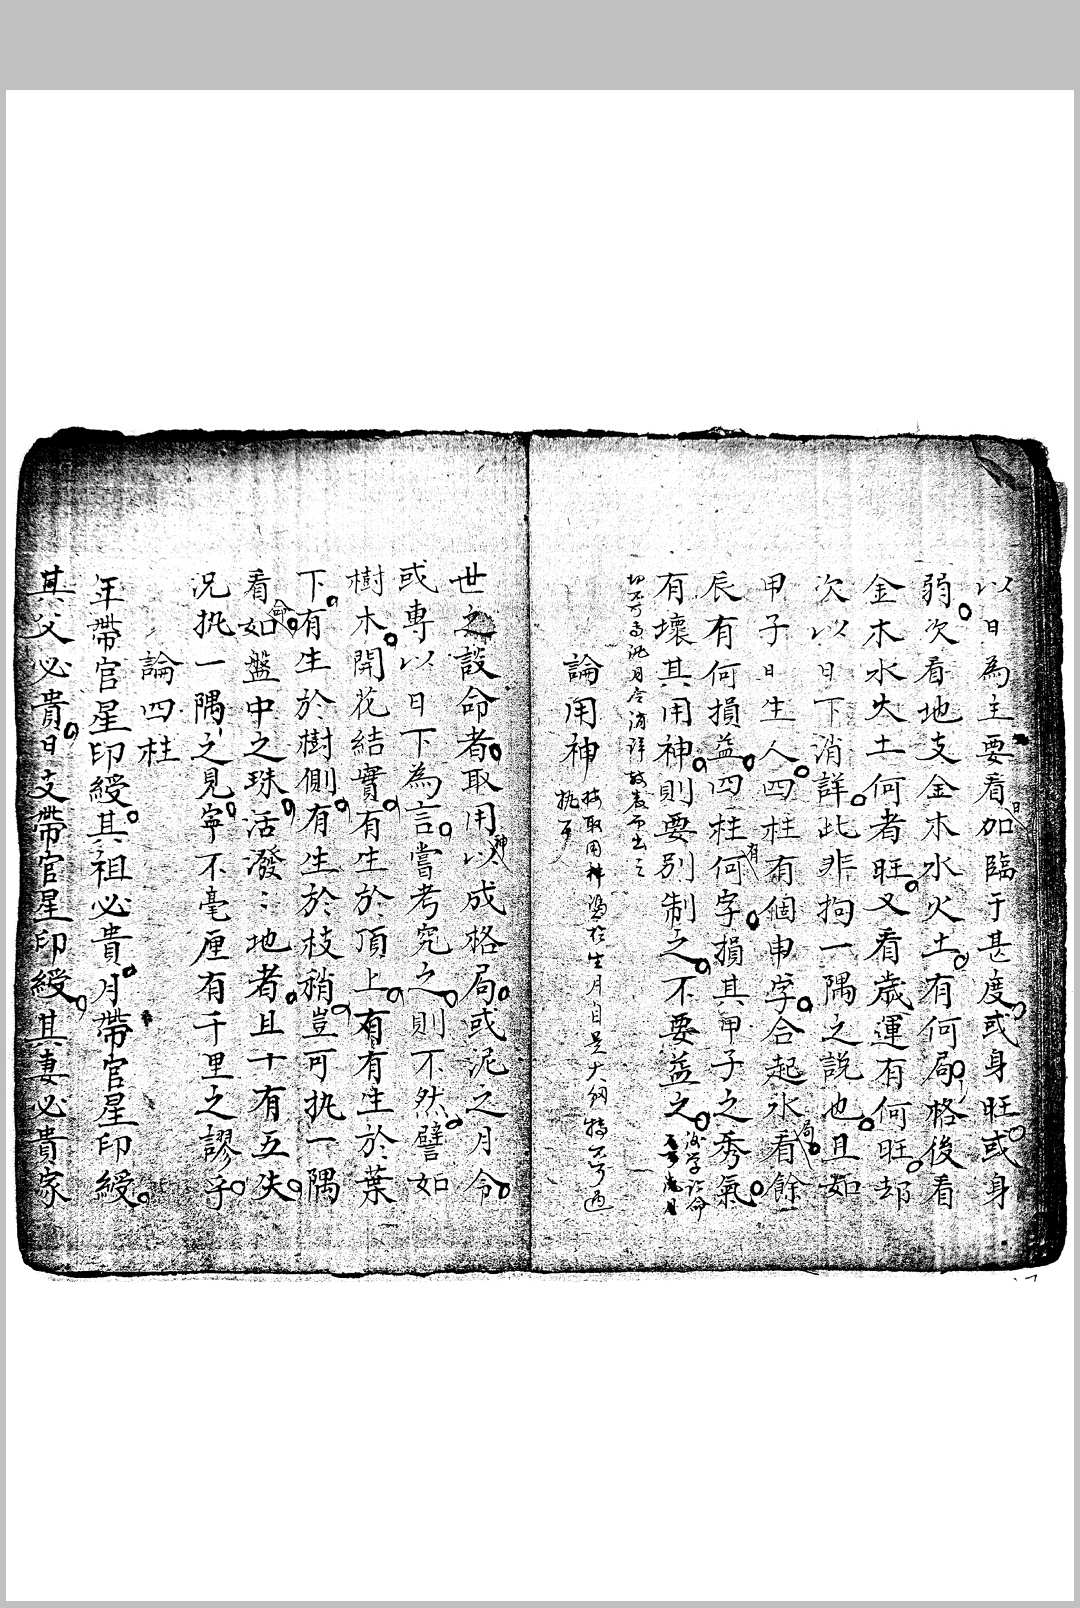 以日為主要看加臨于甚度或身旺或身
弱次看地支金木水火土有何局格後看
金木水火土何者旺又看歲運有何旺却
次以日下消詳此非拘一隅之說也且如
甲子日生人四柱有個申字合起水局看餘
辰有何損益四柱有何字損其甲子之秀氣
有壞其用神則要別制之不要益之後學論命
切不可
論用神
按取用神憑於生月自是大綱特不可過
執耳
世之談命者取用神以成格局或泥之月令
或專以日下為言嘗考究之則不然譬如
樹木開花結實有生於頂上有有生於葉
下有生於樹側有生於枝稍豈可执一隅
看命如盤中之珠活潑〻地者且十有五失
況执一隅之見寧不毫厘有千里之謬乎
論四柱
年帶官星印綬其祖必貴月帶官星印綬
其父必貴日支帶官星印綬其妻必貴家